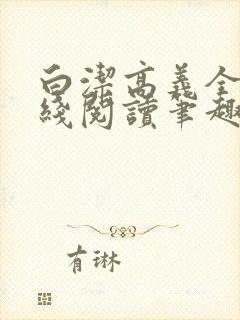 白潔高義全
綫閱讀筆趣
有琳